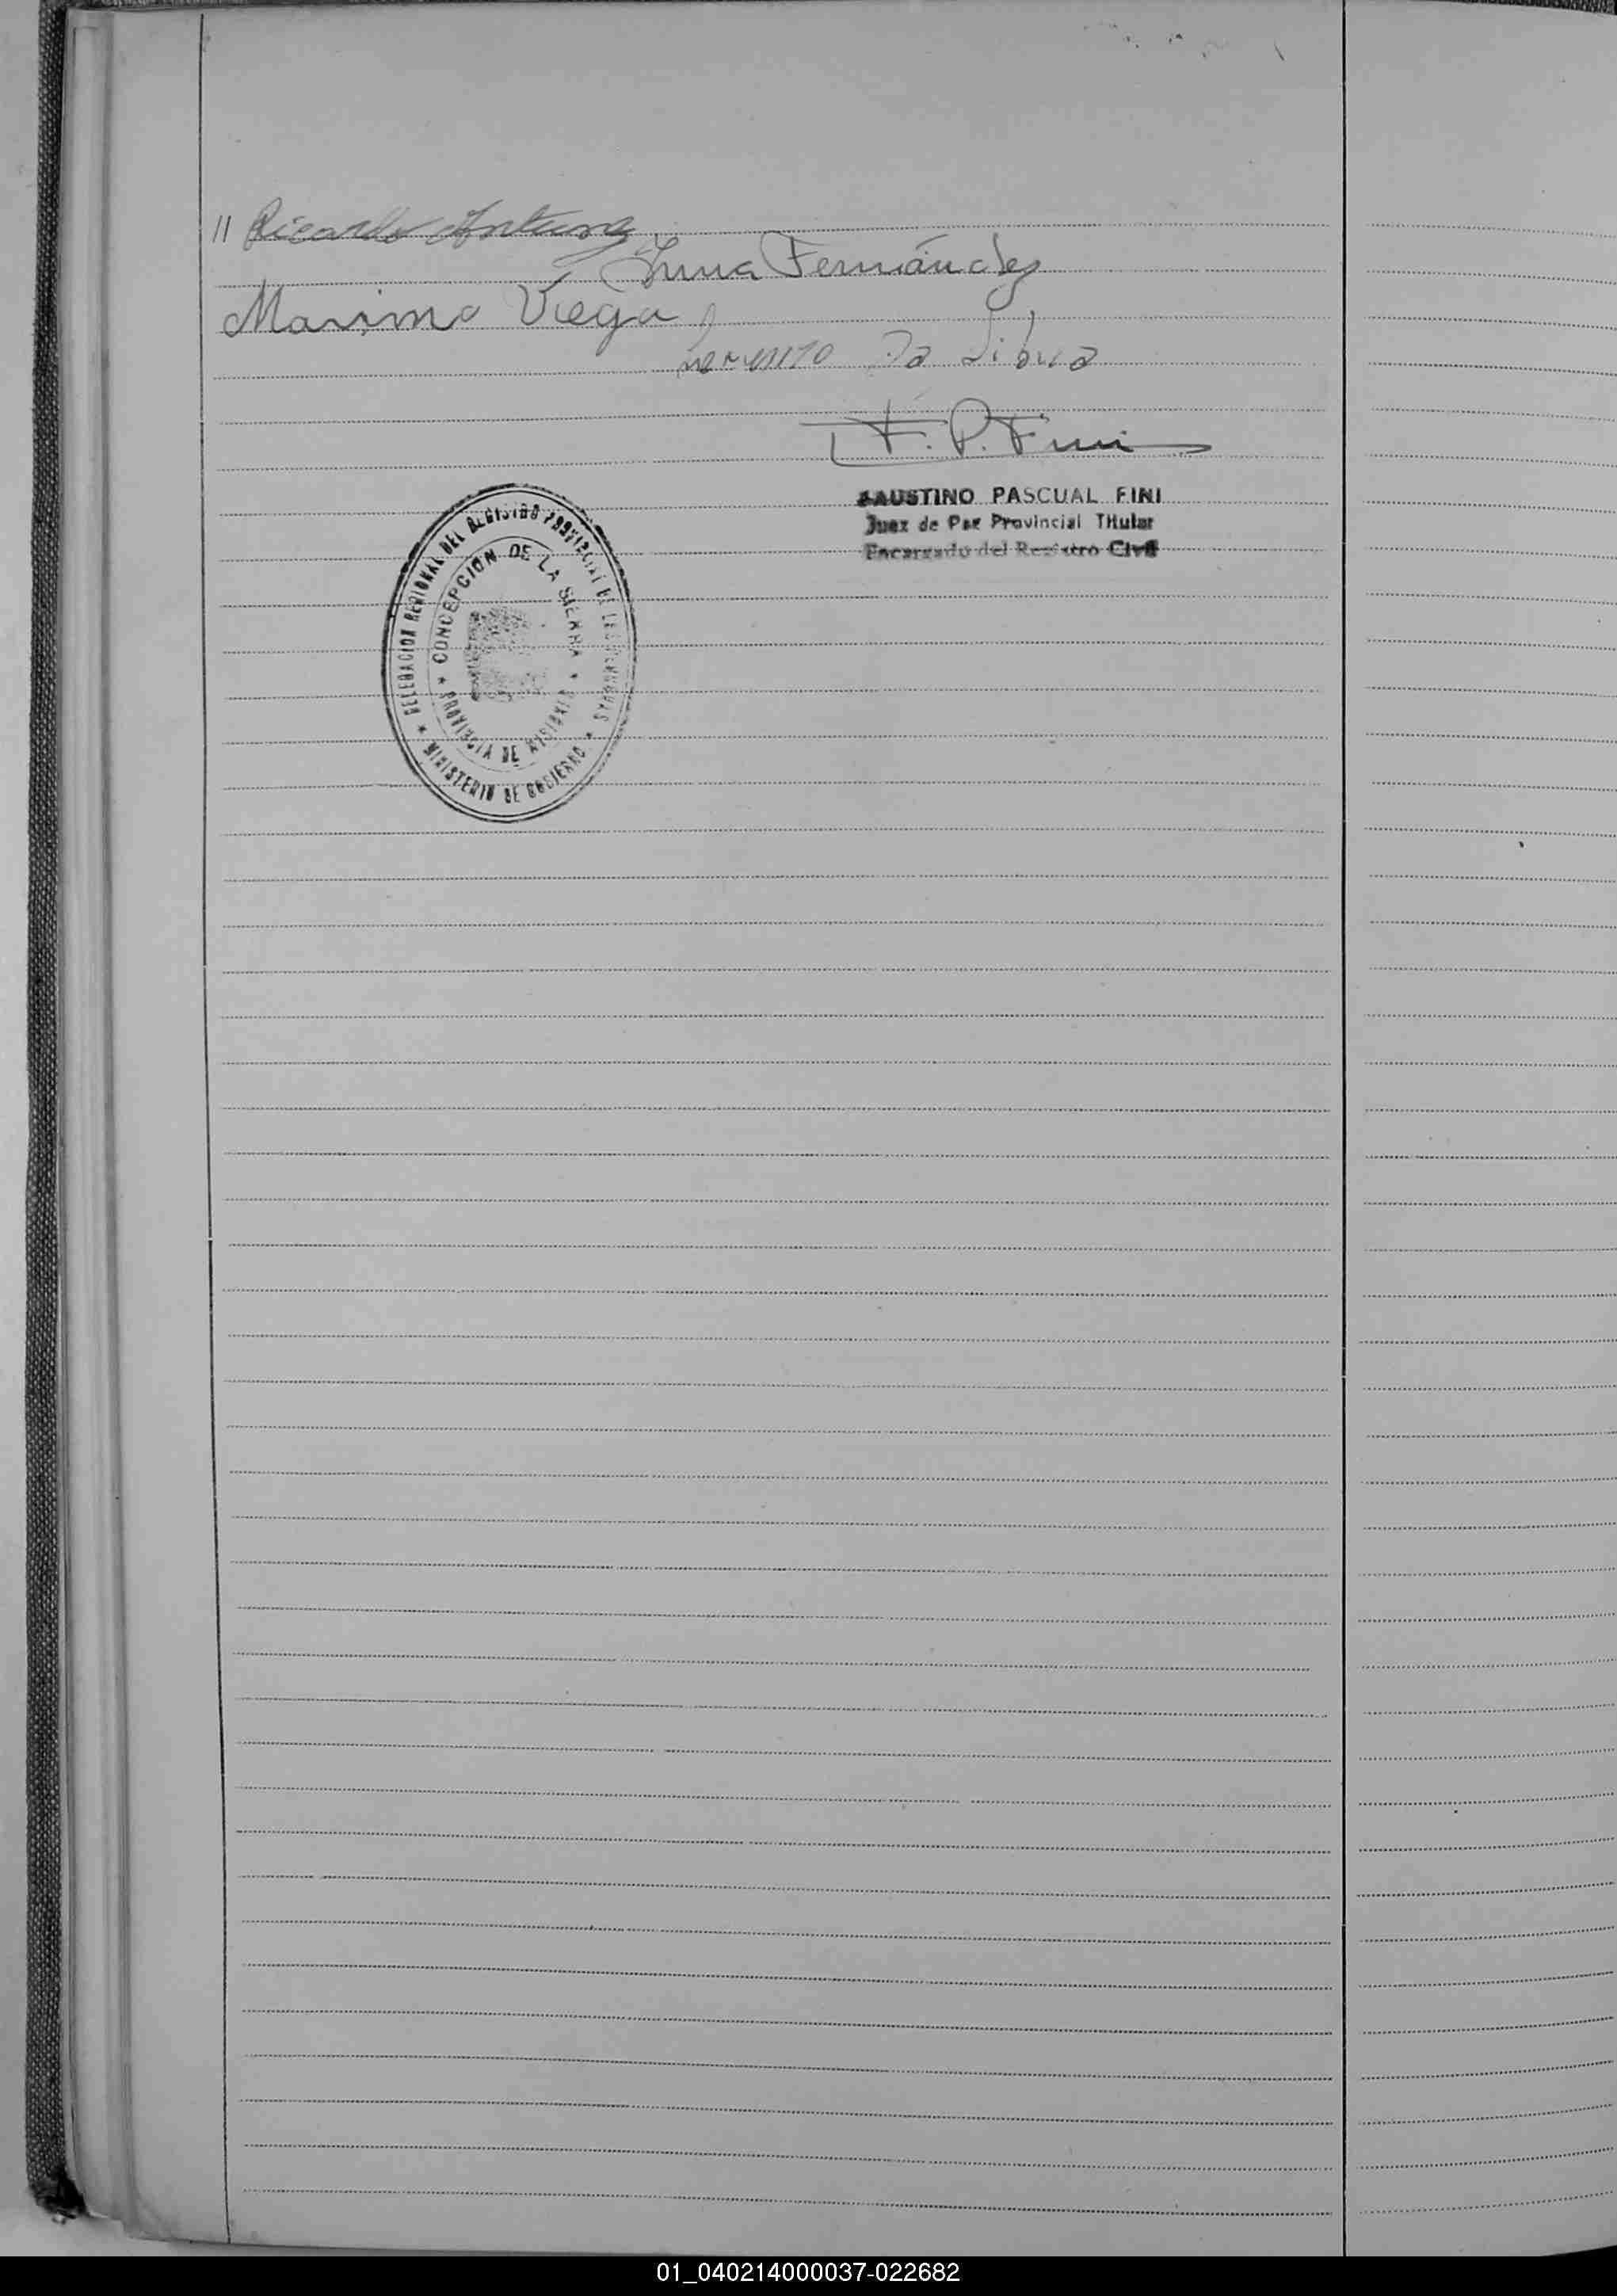 " Ricardo Antunez
Irma Fernández
Maximo Viega
Da Silva
F. P. Fini
FAUSTINO PASCUAL FINI
Juez de Paz Provincial Titular
Encargado del Registro Civil
DELEGACION REGIONAL DEL REGISTRO PROVINCIAL DE LAS PERSONAS
* MINISTERIO DE GOBIERNO *
* CONCEPCION DE LA SIERRA *
PROVINCIA DE MISIONES
01_040214000037-022682